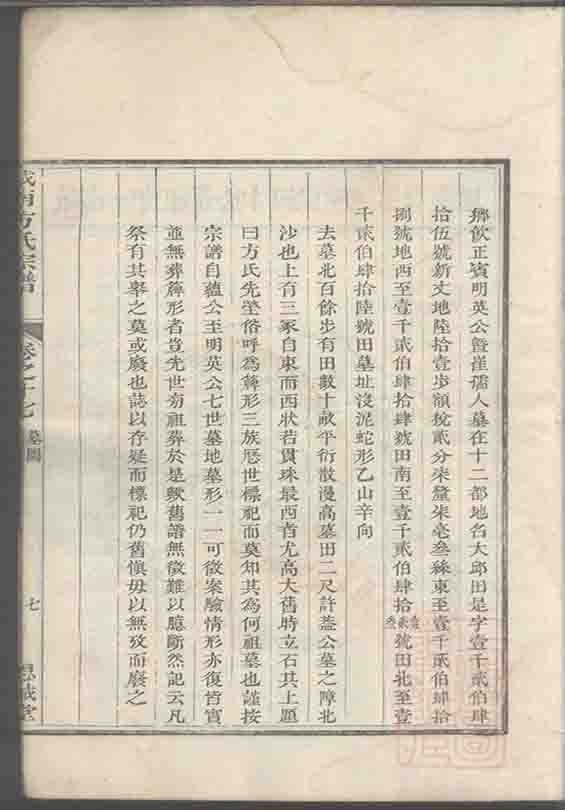 鄉飲正賓明英公曁崔孺人墓在十二都地名大邱田是字壹千貳伯肆
拾伍號新丈地陸拾壹步額稅貳分柒釐柒毫叁絲東至壹千貳伯肆拾
捌號地西至壹千貳伯肆拾肆號田南至壹千貳伯肆拾壹貳叁號田北至壹
千貳伯肆拾陸號田墓址沒泥蛇形乙山辛向
去墓北百餘步有田數十畝平衍散漫高墓田二尺許蓋公墓之障北
沙也上有三冢自東而西狀若貫珠最西者尤高大舊時立石其上題
曰方氏先塋俗呼為蓴形三族歷世標祀而莫知其為何祖墓也謹按
宗譜自蘊公至明英公七世墓地墓形一一可徵案驗情形亦復皆實
並無葬蓴形者豈先世旁祖葬於是歟舊譜無徵難以臆斷然記云凡
祭有其舉之莫或廢也誌以存疑而標祀仍舊慎毋以無攷而廢之
城南方氏宗譜
卷之十七
墓圖
七
思誠堂